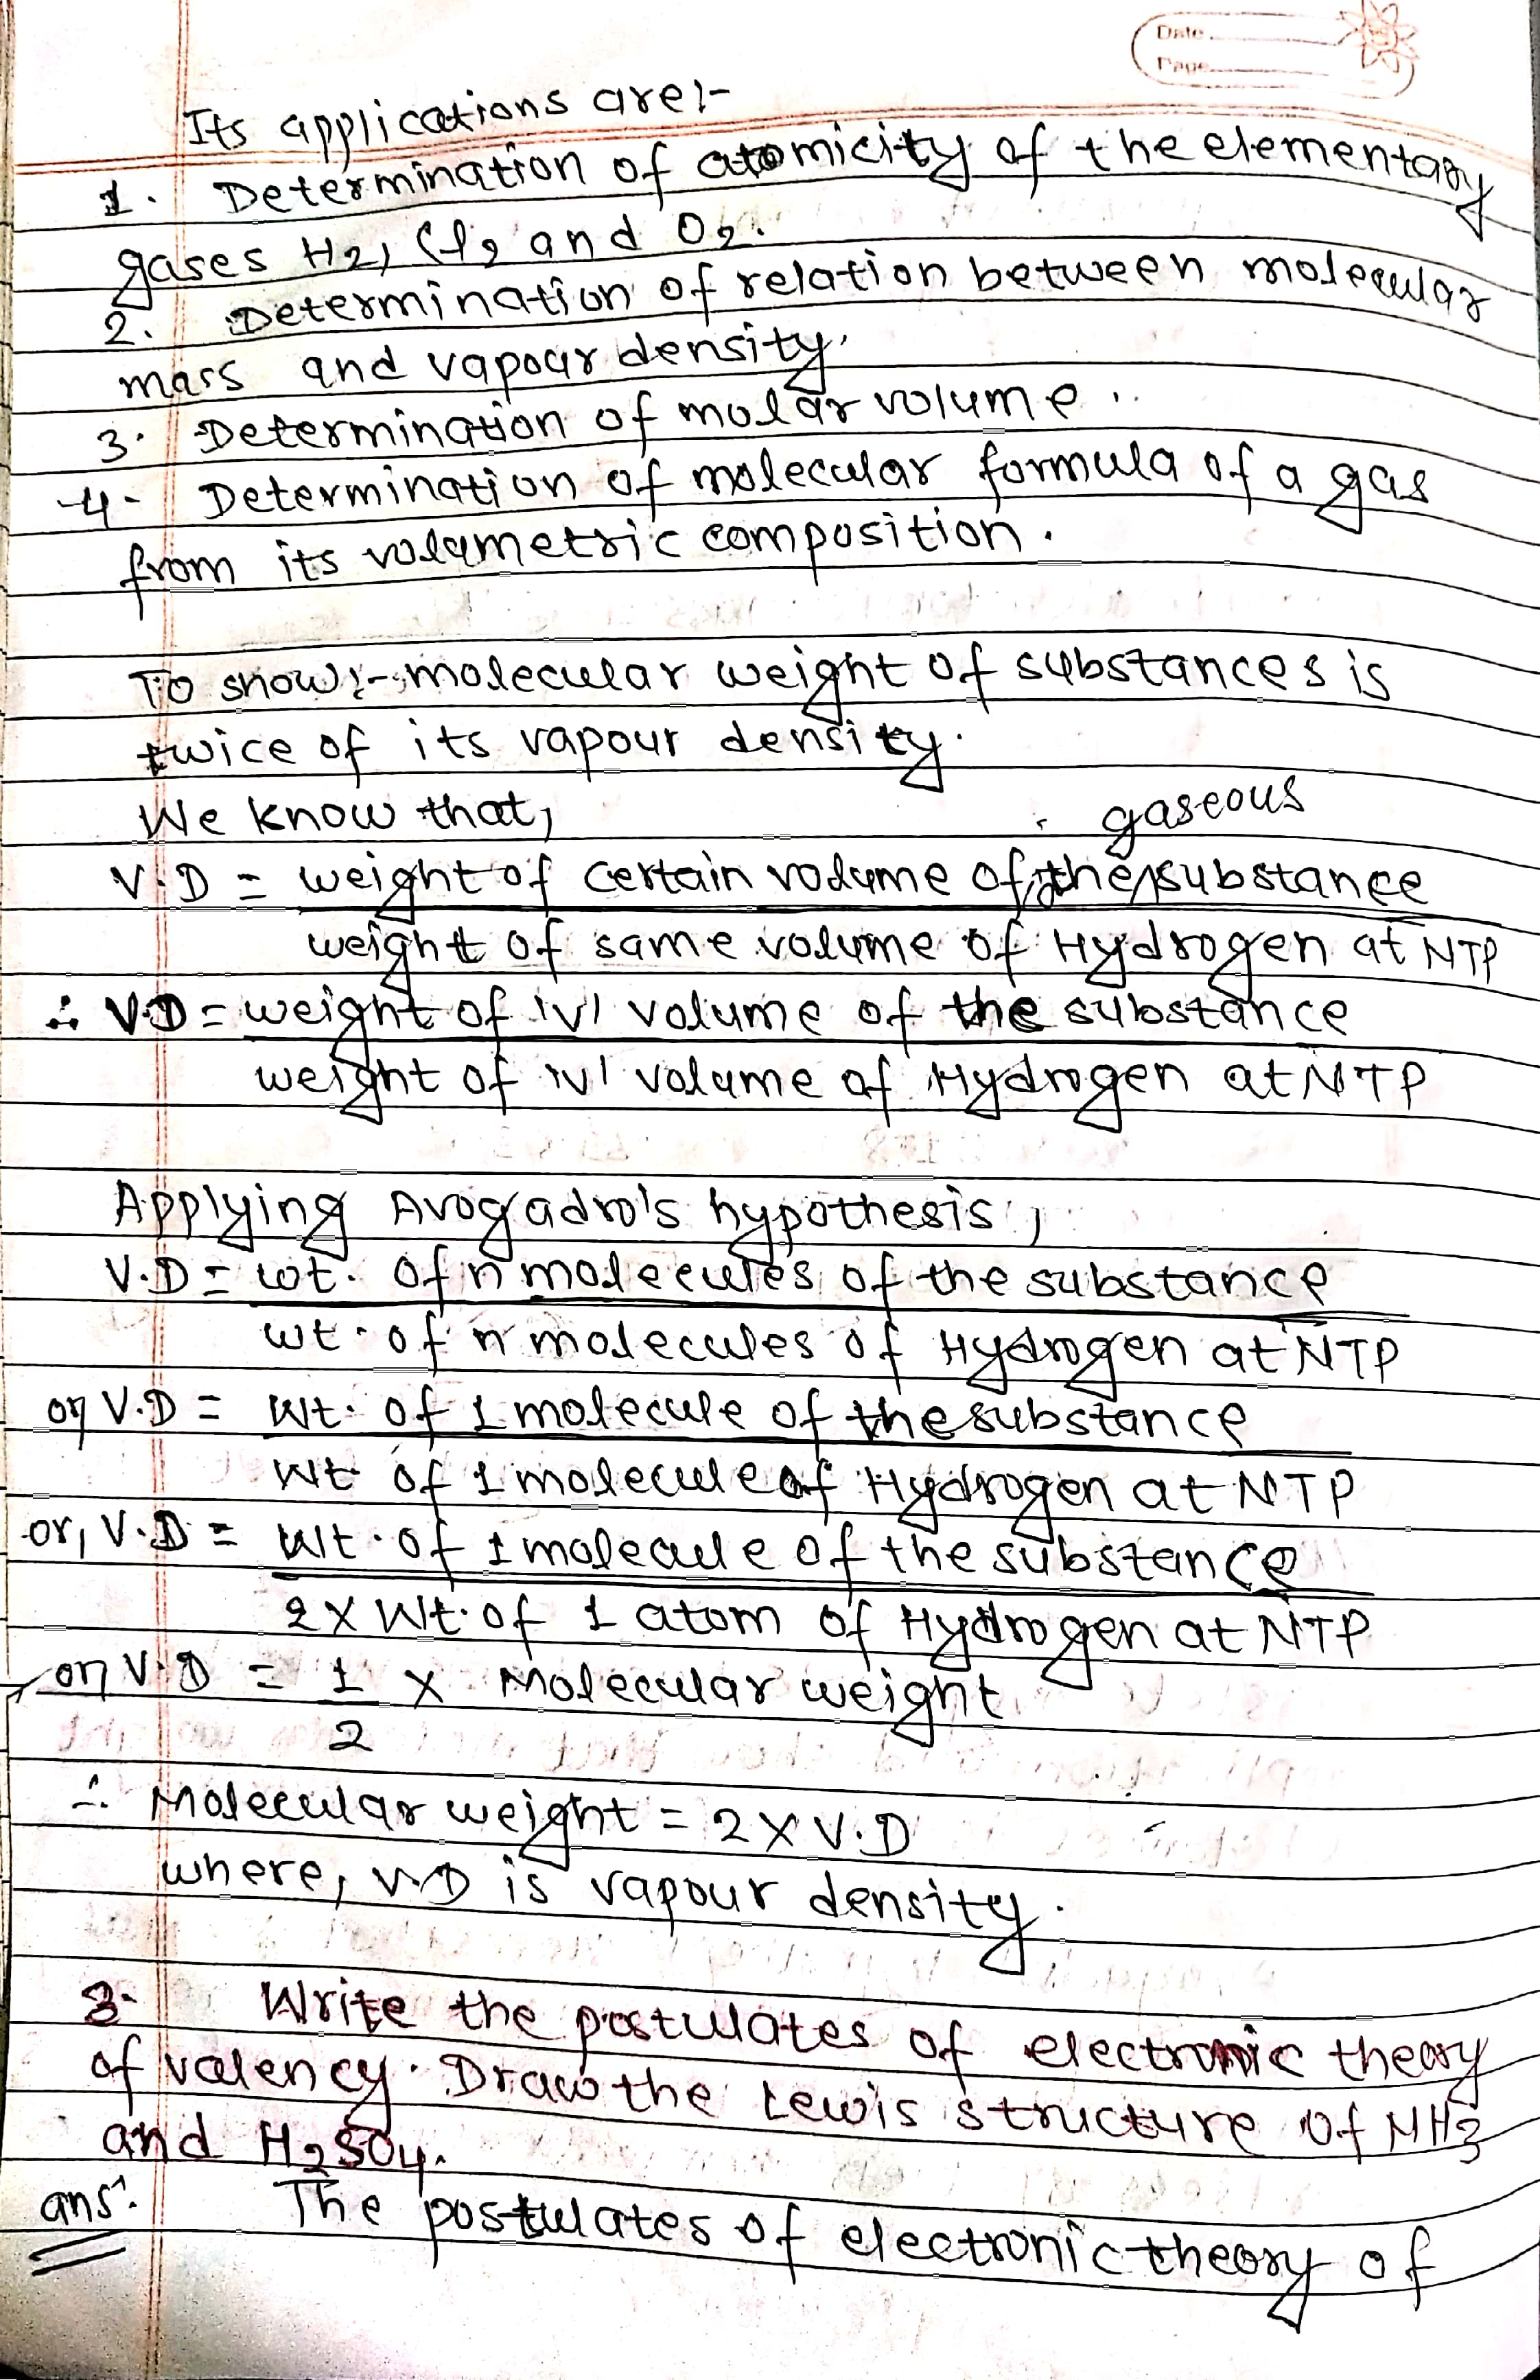 Date
Page
Its applications are:-
1. Determination of atomicity of the elementary
gases H2, Cl2 and O2.
2. Determination of relation between molecular
mass and vapour density.
3. Determination of molar volume.
4- Determination of molecular formula of a gas
from its volumetric composition.
To show:- molecular weight of substances is
twice of its vapour density.
We know that,
gaseous
V.D = weight of certain volume of the substance
weight of same volume of Hydrogen at NTP
∴ V.D = weight of 'V' volume of the substance
weight of 'V' volume of Hydrogen at NTP
Applying Avogadro's hypothesis,
V.D = wt. of n molecules of the substance
wt. of n molecules of Hydrogen at NTP
or, V.D = Wt. of 1 molecule of the substance
Wt of 1 molecule of Hydrogen at NTP
or, V.D = Wt. of 1 molecule of the substance
2 X Wt. of 1 atom of Hydrogen at NTP
or, V.D = 1 X Molecular weight
2
∴ Molecular weight = 2 X V.D
where, V.D is vapour density.
3. Write the postulates of electronic theory
of valency. Draw the Lewis structure of NH3
and H2SO4.
ans:
The postulates of electronic theory of